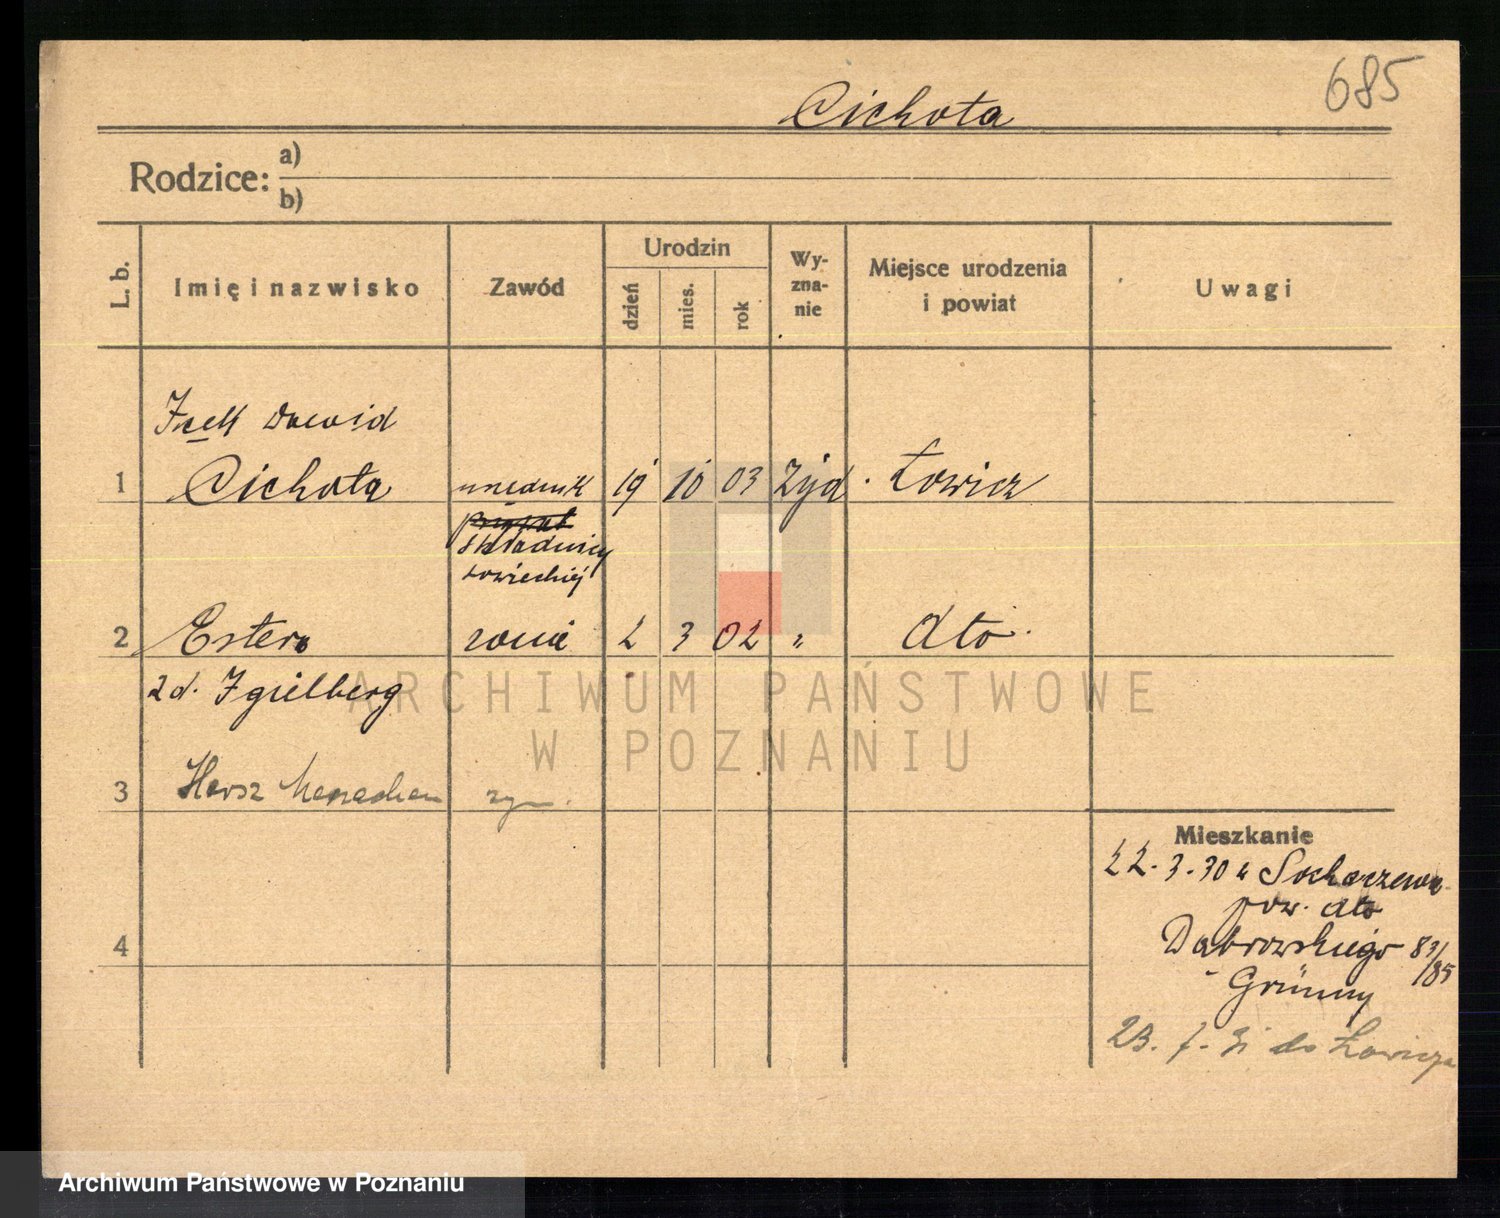 685
Cichota
Rodzice:
a)
b)
L. b.
Imię i nazwisko
Zawód
Urodzin
dzień
mies.
rok
Wy-
zna-
nie
Miejsce urodzenia
i powiat
Uwagi
Icek Dawid
1 Cichota urzędnik 19 10 03 Żyd. Łowicz
składnicy
2 Estera żona 2 3 02 " dto
zd. Igielberg
3 Hersz syn.
4
Mieszkanie
22.3.30 z Sochaczewa
pow. dto
Dąbrowskiego 83/
/85
Grünny
do Łowicza
ARCHIWUM PAŃSTWOWE
W POZNANIU
Archiwum Państwowe w Poznaniu